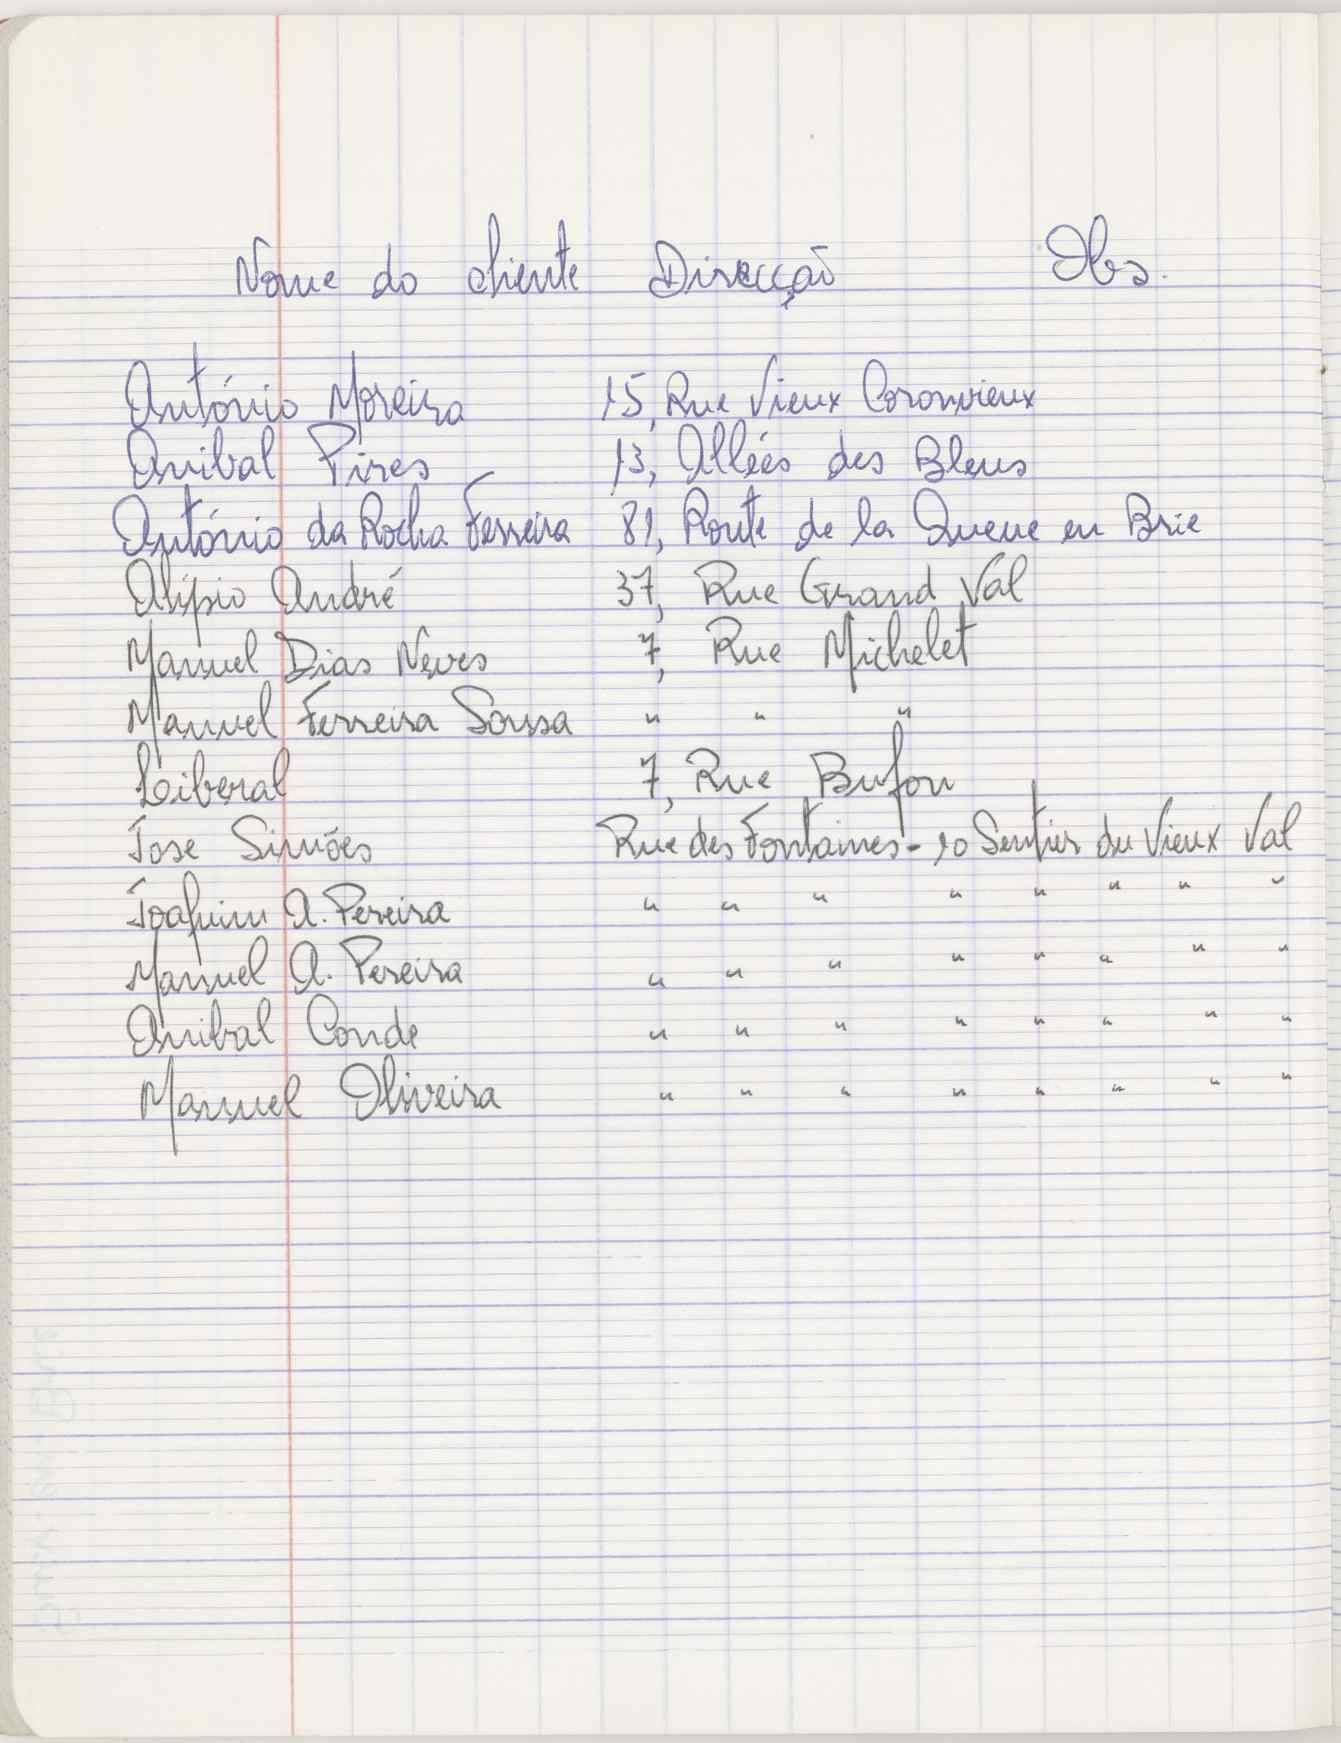 Nome do cliente Direcção Obs.
António Moreira 15, Rue Vieux Coronvieux
Anibal Pires 13, Allées des Bleus
António da Rocha Ferreira 81, Route de la Queue en Brie
Alípio André 37, Rue Grand Val
Manuel Dias Neves 7, Rue Michelet
Manuel Ferreira Sousa " " "
Liberal 7, Rue Bufon
Jose Simões Rue des Fontaines - 10 Sentier du Vieux Val
Joaquim A. Pereira " " " " " " " "
Manuel A. Pereira " " " " " " " "
Anibal Conde " " " " " " " "
Manuel Oliveira " " " " " " " "